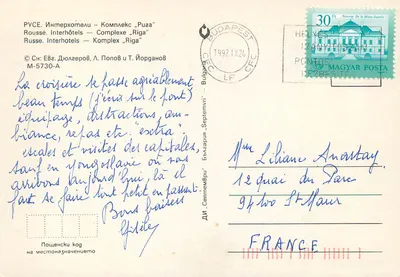 РУСЕ. Интерхотели – Комплекс „Рига"
Rousse. Interhôtels – Complexe „Riga"
Russe. Interhotels – Komplex „Riga"
© Сн: Евг. Дюлгеров, Л. Попов и Т. Йорданов
М-5730-А
La croisière se passe agréablement,
beau temps (j'écris sur le pont)
équipage, distractions, am-
biance, repas etc. "extra".
escales et visites des capitales,
sauf en Yougoslavie où nous
arrivons aujourd'hui, là il
faut se faire tout petit en passant.
Bons baisers
Пощенски код
на местоназначението
ДИ „Септември" България „Septemvri" Bulgarie
BUDAPEST
1992
CFC LF CFC
30Ft
MAGYAR POSTA
HELYES
PONTOS
Mme Liliane
12 quai du Parc
94100 St Maur
FRANCE